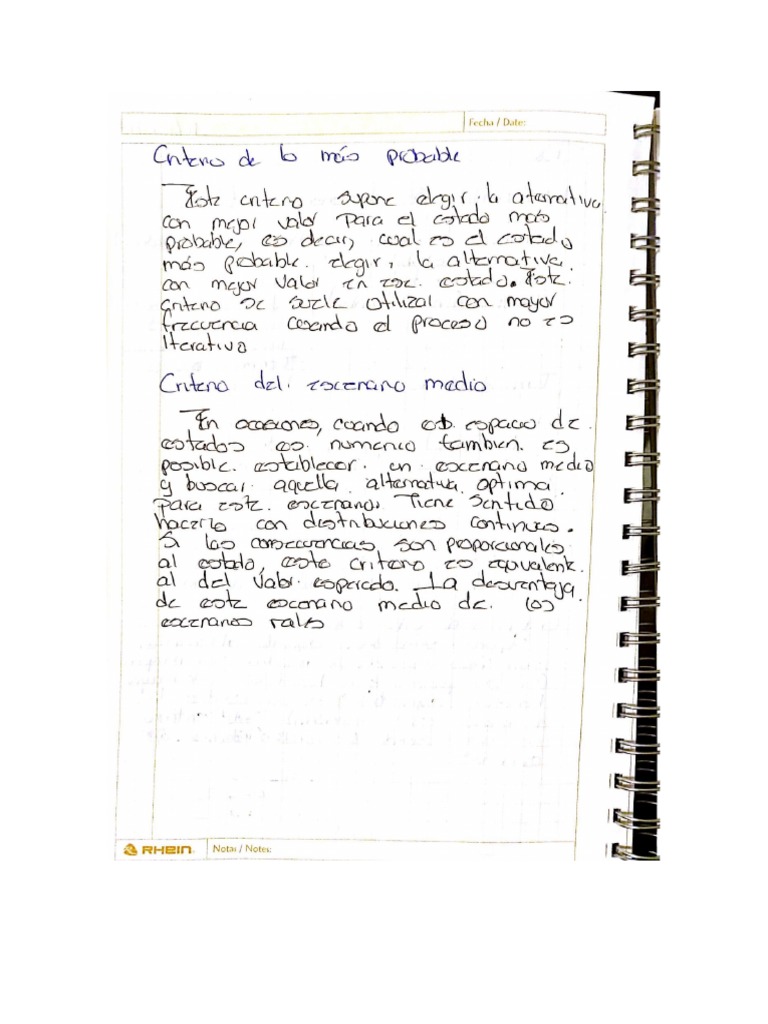 Fecha / Date:
Criterio de lo más probable
Este criterio supone elegir la aternativa
con mejor valor para el estado más
probable, es decir, cual es el estado
más probable. elegir, la alternativa
con mejor valor en ese estado. Este
criterio se suele utilizar con mayor
frecuencia cuando el proceso no es
iterativo
Criterio del escenario medio
En ocasiones, cuando espacio de
estados es numerico tambien es
posible establecer un escenario medio
y buscar aquella alternativa optima
para este escenario. Tiene sentido
hacerlo con distribuciones continues.
Si las consecuencias son proporcionales
al estado, este criterio es equivalente
al del valor esperado. La desventaja
de este escenario medio de los
escenarios
RHEIN
Notas / Notes: